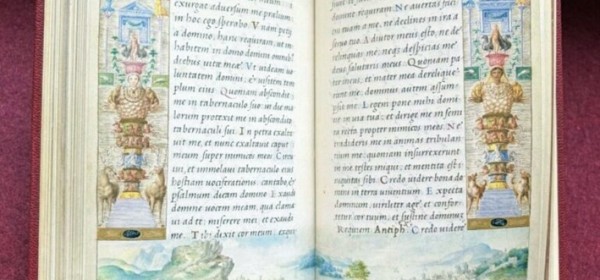 exurgat aduersum me prælium,
in hoc ego sperabo. Vnam petij
a domino, hanc requiram, ut in
habitem in domo domini omnib'
diebus uitæ meæ. Vt uideam uo
luntatem domini: & uisitem tem
plum eius. Quoniam abscondit
me in tabernaculo suo: in die ma
lorum protexit me in abscondito
tabernaculi sui. In petra exalta
uit me, et nunc exaltauit caput
meum super inimicos meos. Circu
iui, et immolaui tabernaculo eius
hostiam uociferationis: cantabo, &
psalmum dicam domino. Exaudi
domine uocem meam, qua clama
ui ad te: miserere mei, et exaudi
me. Tibi dixit cor meum, exqui
domine requiram. Ne auertas faci
tuam a me, ne declines in ira a
tuo. Adiutor meus esto, ne de
relinquas me: neq; despicias me
deus salutaris meus. Quoniam pa
ter meus, et mater mea derelique
runt me: dominus autem assum
psit me. Legem pone mihi domi
ne in uia tua: et dirige me in semi
ta recta propter inimicos meos. Ne
tradideris me in animas tribulan
tium me: quoniam insurrexerunt
in me testes iniqui: et mentita est
iniquitas sibi. Credo uidere bona do
mini in terra uiuentium. Expecta
dominum, uiriliter age, et confor
tetur cor tuum, et sustine dominum.
Requiem. Antiph. Credo uidere